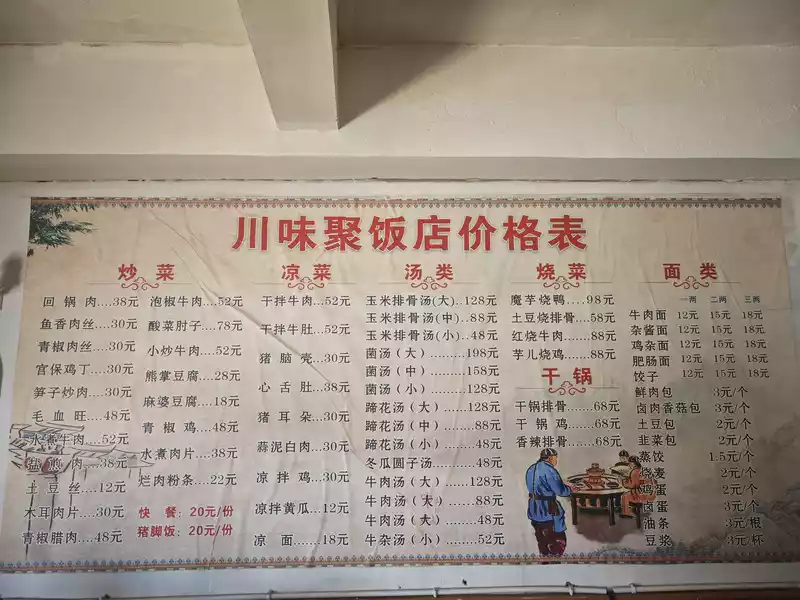 川味聚饭店价格表
炒菜
回锅肉....38元
鱼香肉丝....30元
青椒肉丝....30元
宫保鸡丁....30元
笋子炒肉....30元
毛血旺....48元
水煮牛肉....52元
盐煎肉....38元
土豆丝....12元
木耳肉片....30元
青椒腊肉....48元
泡椒牛肉....52元
酸菜肘子....78元
小炒牛肉....52元
熊掌豆腐....28元
麻婆豆腐....18元
青椒鸡....48元
水煮肉片....38元
烂肉粉条....22元
快餐：20元/份
猪脚饭：20元/份
凉菜
干拌牛肉...52元
干拌牛肚....52元
猪脑壳....30元
心舌肚....38元
猪耳朵....30元
蒜泥白肉....30元
凉拌鸡....30元
凉拌黄瓜....12元
凉面.......18元
汤类
玉米排骨汤(大)..128元
玉米排骨汤(中)..88元
玉米排骨汤(小)..48元
菌汤（大）.......198元
菌汤（中）.......158元
菌汤（小）.......128元
蹄花汤（大）....128元
蹄花汤（中）....88元
蹄花汤（小）....48元
冬瓜圆子汤.......48元
牛肉汤（大）....128元
牛肉汤（大）.....88元
牛肉汤（大）.....48元
牛杂汤（小）.....52元
烧菜
魔芋烧鸭....98元
土豆烧排骨...58元
红烧牛肉.....88元
芋儿烧鸡.....88元
干锅
干锅排骨.....68元
干锅鸡.....68元
香辣排骨.....68元
面类
一两 二两 三两
牛肉面 12元 15元 18元
杂酱面 12元 15元 18元
鸡杂面 12元 15元 18元
肥肠面 12元 15元 18元
饺子 12元 15元 18元
鲜肉包 3元/个
卤肉香菇包 3元/个
土豆包 2元/个
韭菜包 2元/个
蒸饺 1.5元/个
烧麦 2元/个
鸡蛋 2元/个
卤蛋 3元/个
油条 3元/棍
豆浆 3元/杯